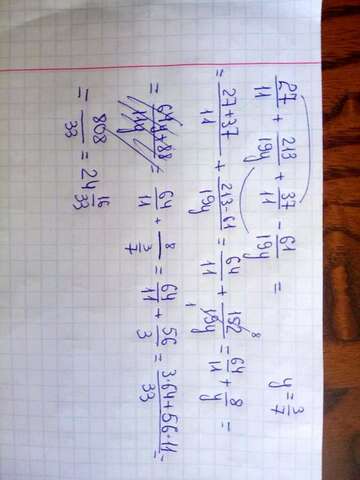 27/11 + 213/19y + 37/11 - 61/19y = y = 3/7
= (27+37)/11 + (213-61)/19y = 64/11 + 152/19y = 64/11 + 8/y =
= = 64/11 + 8/(3/7) = 64/11 + 56/3 = (3·64+56·11)/33 =
= 808/33 = 24 16/33